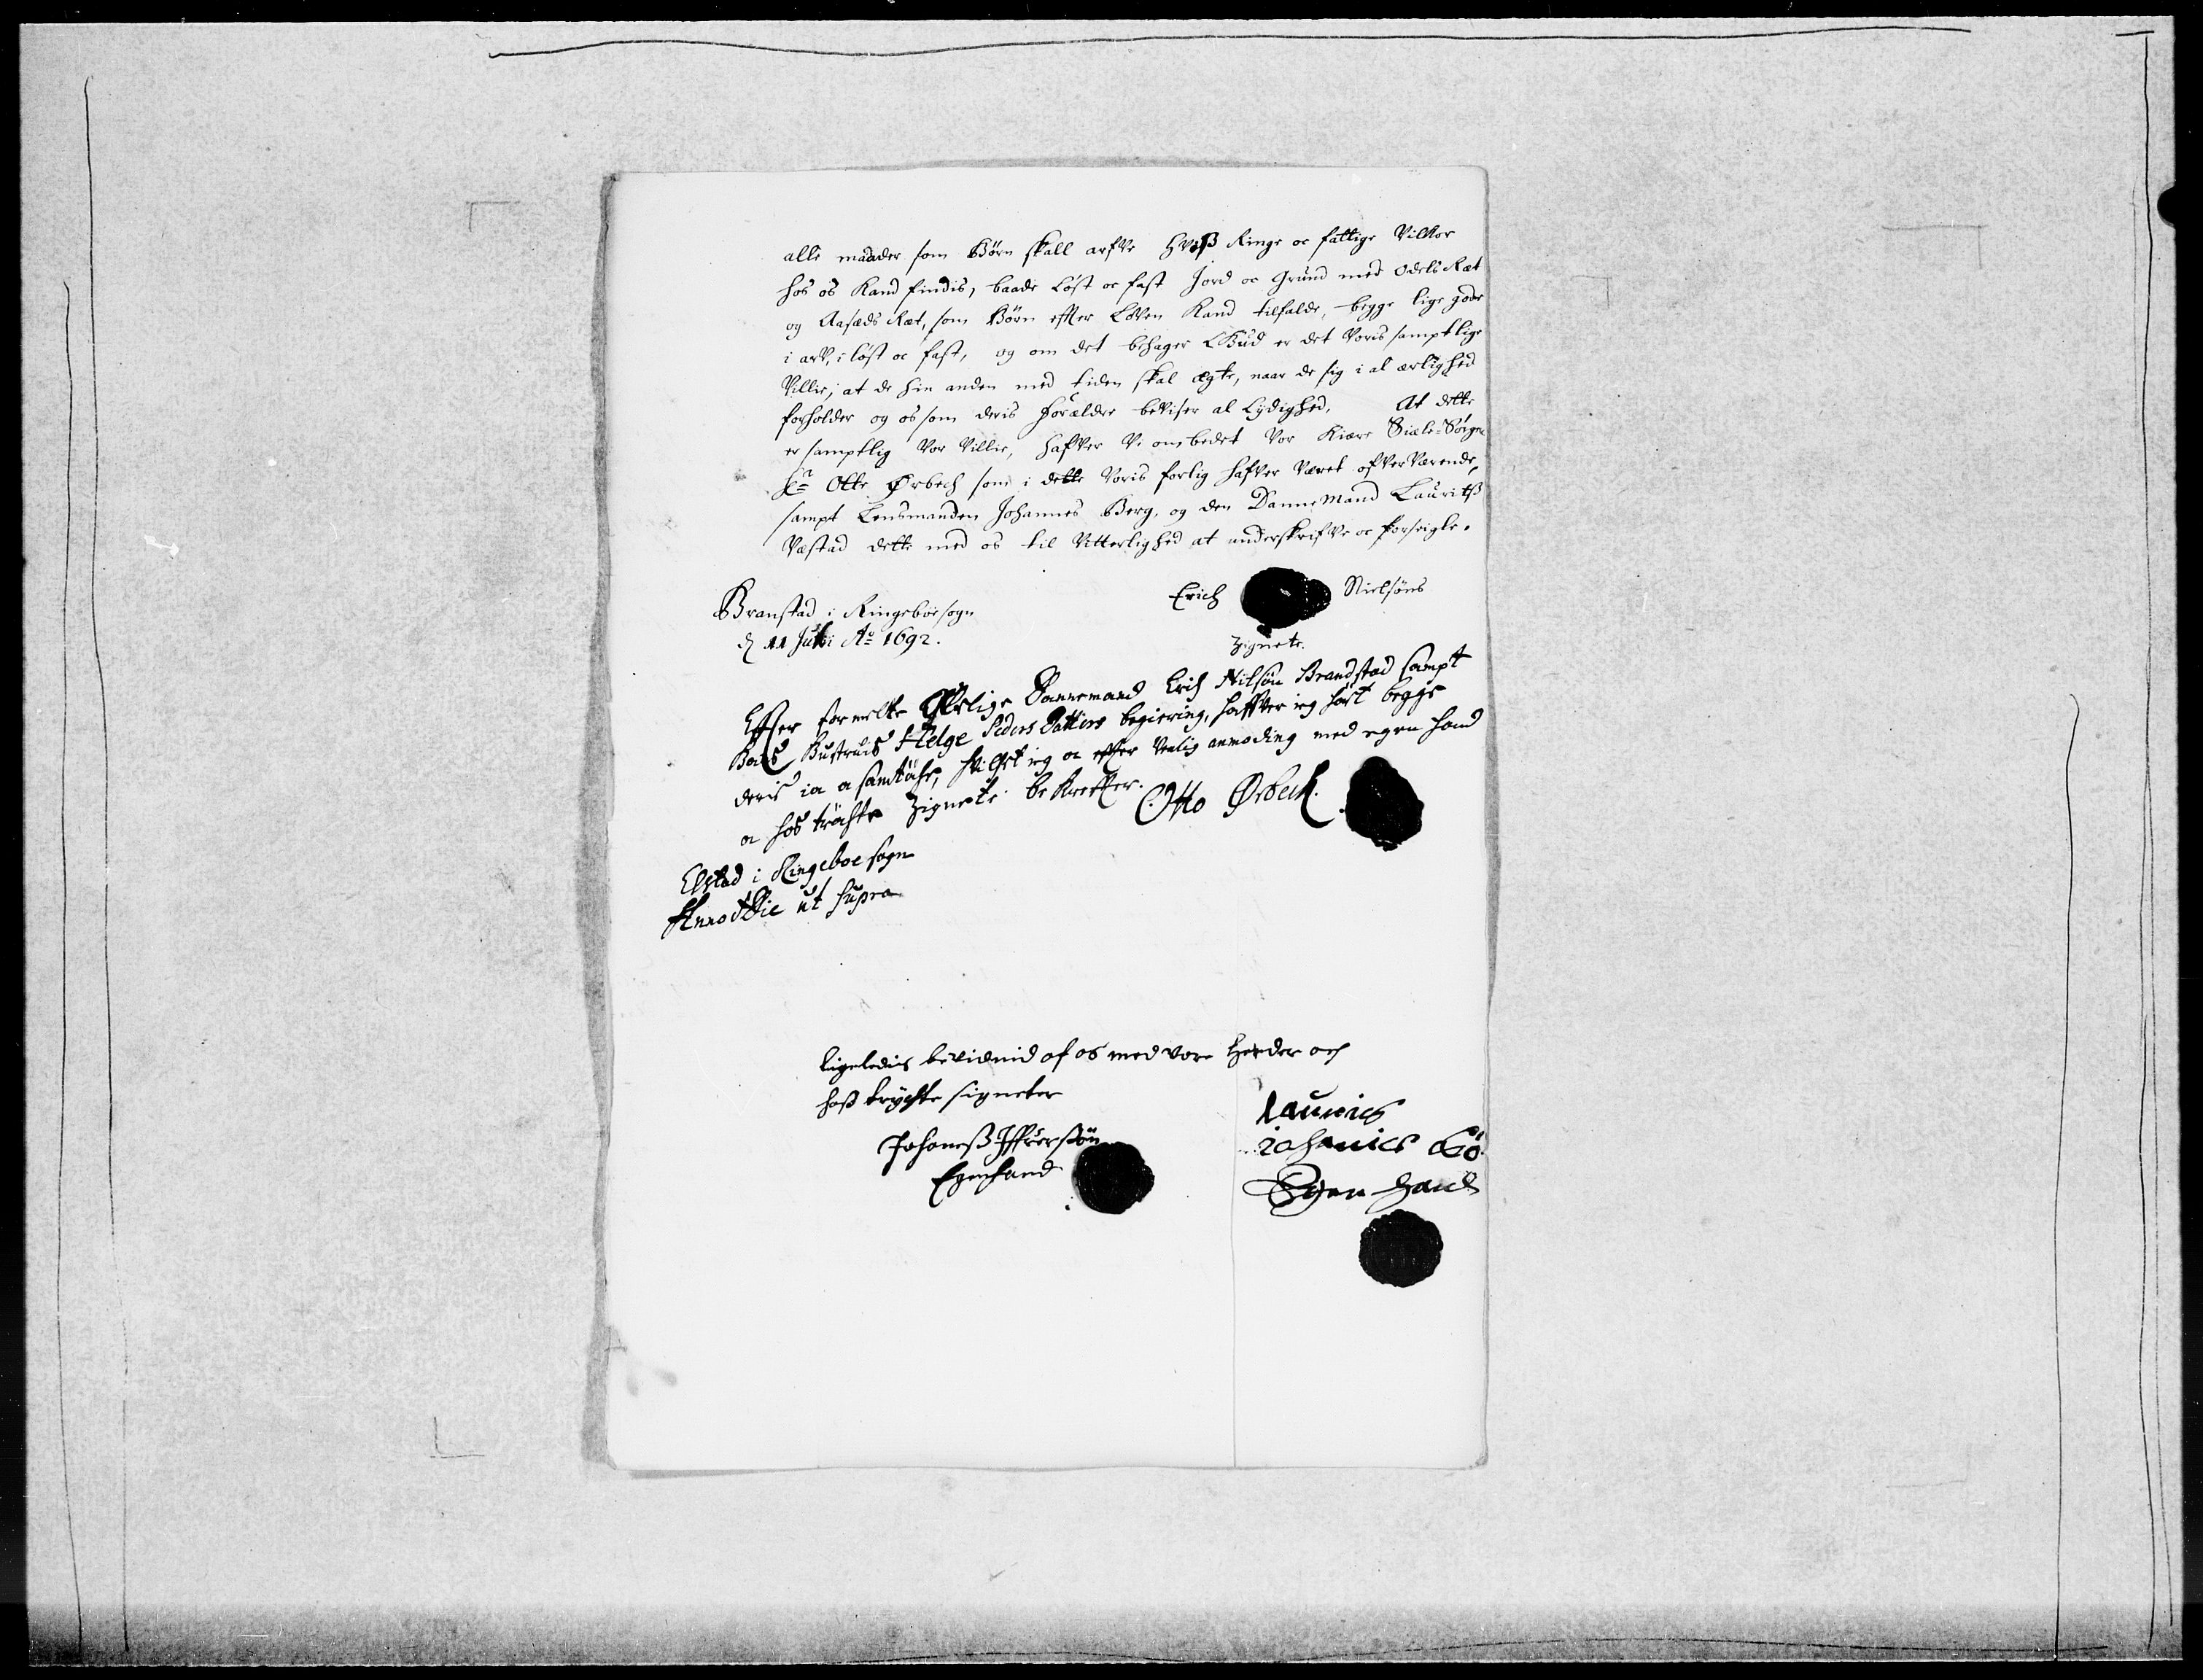 alle maader som Børn skall arfve hviß Ringe oc fattige Vilkor
hos os Kand findis, baade Løst oc fast Jord oc Grund med Odels Ræt
og Aasæds Ræt, som Børn effter Loven Kand tilfalde, begge lige gode
i arV, i løst oc fast, og om det behager Gud er det Voris samptlige
Villie, at de hin anden med tiden skal ægte, naar de sig i al ærlighed
forholder og os som deris forældre beviser al Lydighed. At dette
er samptlig Vor Villie, hafver Vi ombedet Vor Kiære Siæle-Sørgere
Hr Otte Ørbech som i dette Voris forlig hafver Været ofverVærende,
sampt Lensmanden Johannes Berg, og den DanneMand Lauritz
Væstad dette med os til Vitterlighed at underskrifve oc forseigle.
Erich Nielsøns
Branstad i Ringeboe sogn
d 11 Juli Ao 1692.
Zignete.
Effter formelte Ærlige Dannemand Erich Nilsøn Brandstad sampt
Hustruis Helge Peders Datters begiering, haffver ieg hørt begge
deris ia oc samtøche, hvilchet ieg oc effter Venlig anmoding med egen Hand
oc hos tröchte Zignete bekreffter. Otto Ørbech.
Elstad i Ringeboe sogn
Anno Die ut supra
ligeledis beviednid af os med vore Hender och
hoß trychte signeter
Johanneß Iffuerßøn
Egenhand
Lauriches
iohanies
Egen Hand